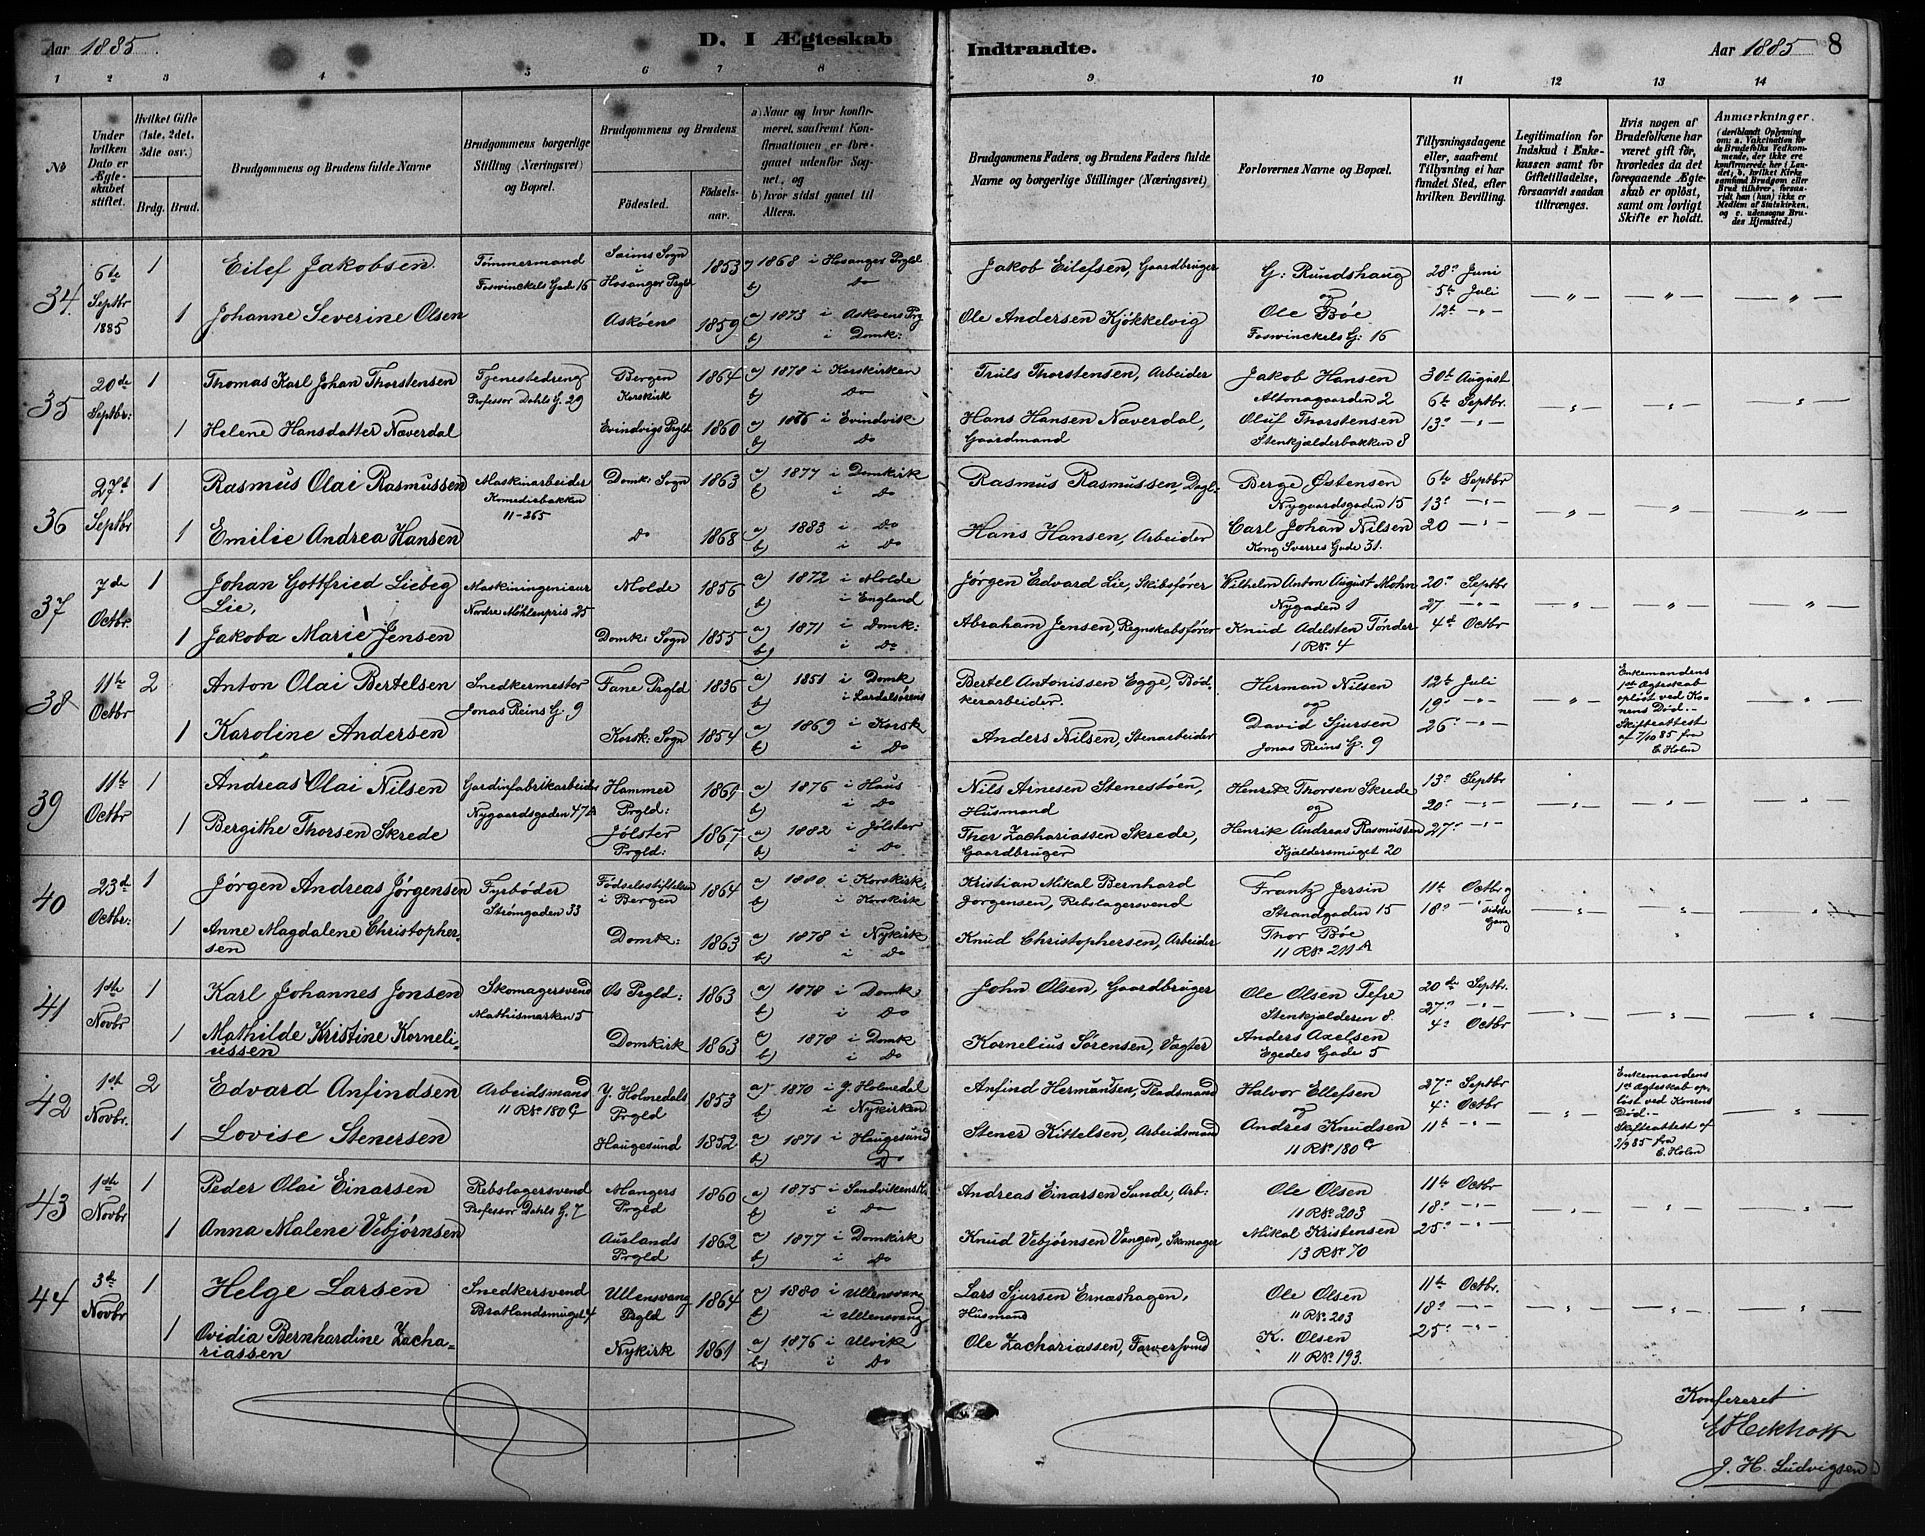 Aar 1885.
D. I Ægteskab
Indtraadte.
Aar 1885
8
1 2 3 4 5 6 7 8
9 10 11 12 13 14
No
Under hvilken Dato er Ægteskabet stiftet.
Hvilket Gifte (1ste, 2det, 3die osv.)
Brdg. Brud.
Brudgommens og Brudens fulde Navne
Brudgommens borgerlige Stilling (Næringsvei) og Bopæl.
Brudgommens og Brudens
Fødested.
Fødselsaar.
a) Naar og hvor konfirmeret, saafremt Konfirmationen er foregaaet udenfor Sognet, og
b) hvor sidst gaaet til Alters.
Brudgommens Faders, og Brudens Faders fulde Navne og borgerlige Stillinger (Næringsvei)
Forlovernes Navne og Bopæl.
Tillysningsdagene eller, saafremt Tillysning ei har fundet Sted, efter hvilken Bevilling.
Legitimation for Indskud i Enkekassen samt for Giftetilladelse, forsaavidt saadan tiltrænges.
Hvis nogen af Brudefolkene har været gift før, hvorledes da det foregaaende Ægteskab er opløst, samt om lovligt Skifte er holdt.
Anmærkninger.
(deriblandt Oplysning om: a. Vakcination for de Brudefolks Vedkommende, der ikke ere konfirmerede her i Landet; b. hvilket Kirkesamfund Brudgom eller Brud tilhører, forsaavidt han (hun) ikke er Medlem af Statskirken, og c. udensogns Brudes Hjemsted.)
34. 6te Septbr 1885 1 Eilef Jakobsen Tømmermand Foswinckels Gade 16 Saims Sogn i Hosanger Prgld 1853 a) 1868 i Hosanger Prgld b) Do Jakob Eilefsen, Gaardbruger G. Rundshaug og 28de Juni 5te Juli
1 Johanne Severine Olsen Askøen 1859 a) 1873 i Askøens Prg b) i Domk: Ole Andersen Kjøkkelvig Ole Bøe Foswinckels G: 16 12te -"-
35 20de Septbr: 1 Thomas Karl Johan Thorstensen Tjenestedreng Professor Dahls G. 29 Bergen Korskirk 1864 a) 1878 i Korskirken b) Do Truls Thorstensen, Arbeider Jakob Hansen Altonagaarden 2 30te August 6te Septbr.
1 Helene Hansdatter Næverdal Evindvigs Prgld 1860 a) 1876 i Evindvik b) Do Hans Hansen Næverdal, Gaardmand Oluf Thorstensen Stenkjælderbakken 8 13de -"-
36 27de Septbr 1 Rasmus Olai Rasmussen Maskinarbeider Komediebakken 11-265 Domk: Sogn 1863 a) 1877 i Domkirk b) i Do Rasmus Rasmussen, Dagl: Berge Østensen Nygaardsgaden 15 6te Septbr 13de -"-
1 Emilie Andrea Hansen Do 1868 a) 1883 i Do b) i Do Hans Hansen, Arbeider Carl Johan Nilsen Kong Sverres Gade 31. 20 -"-
37 7de Octbr. 1 Johan Gottfried Liebeg Lie, Maskiningeniøur Nordre Møhlenpris 25 Molde 1856 a) 1872 i Molde b) i England Jørgen Edvard Lie, Skibsfører Wilhelm Anton August Mohn Nygaden 1 20de Septbr 27 -"-
1 Jakoba Marie Jensen Domk: Sogn 1855 a) 1871 i Domk: b) i Do Abraham Jensen, Regnskabsfører Knud Adelsten Tønder 1 RNo. 4 4de Octbr
38 11te Octbr 2 Anton Olai Bertelsen Snedkermester Jonas Reins G. 9 Fane Prgld 1836 a) 1851 i Domk b) i Lærdalsørens Bertel Antonissen Egge, Bødkerarbeider. Herman Nilsen og 12te Juli 19de -"- Enkemandens 1ste Ægteskab opløst ved Konens Død.- Skifteattest af 7/10 85 fra C. Holm
1 Karoline Andersen Korsk: Sogn 1854 a) 1869 i Korsk b) i Do Anders Nilsen, Stenarbeider David Sjursen Jonas Reins G. 9 26de -"-
39 11te Octbr 1 Andreas Olai Nilsen Gardinfabrikarbeider Nygaardsgaden 47A Hammer Prgld: 1861 a) 1876 i Haus b) i Do Nils Arnesen Stenestøen, Husmand Henrik Thorsen Skrede og 13de Septbr 20de -"-
1 Bergithe Thorsen Skrede Jølster Prgld: 1867 a) 1882 i Jølster b) i Do Thor Zachariassen Skrede, Gaardbruger Henrik Andreas Rasmussen Kjældersmuget 20 27de -"-
40 23de Octbr: 1 Jørgen Andreas Jørgensen Fyrbøder Strømgaden 33 Fødselsstiftelsen i Bergen 1864 a) 1880 i Korskirk b) i Korskirk Kristian Mikal Bernhard Jørgensen, Rebslagersvend Frantz Jersin Strandgaden 15 11te Octbr og 18de -"- sidste Gang
1 Anne Magdalene Christophersen Domk: 1863 a) 1878 i Nykirk b) i Do Knud Christophersen, Arbeider Thor Bøe 11 RNo. 211 A
41 1ste Novbr 1 Karl Johannes Jonsen Skomagersvend Mathismarken 5 Os Prgld: 1863 a) 1878 i Domk b) i Do John Olsen, Gaardbruger Ole Olsen Tefre Stenkjælderen 8. 20de Septbr. 27de -"-
1 Mathilde Kristine Korneliussen Domkirk 1863 a) 1878 i Domk b) i Do Kornelius Sørensen, Vægter Anders Axelsen Egedes Gade 5 4de Octbr
42 1ste Novbr. 2 Edvard Anfindsen Arbeidsmand 11 RNo. 180 C Y. Holmedals Prgld 1853 a) 1870 i Y. Holmedal b) i Nykirken Anfind Hermansen, Pladsmand Halvor Ellefsen og 27de Septbr 4de Octbr Enkemandens 1ste Ægteskab opløst ved Konens Død.- Skifteattest af 2/9 85 fra C. Holm
1 Lovise Stenersen Haugesund 1852 a) 1871 i Haugesund b) Do Stener Kittelsen, Arbeidsmand Andres Knudsen 11 RNo. 180 C 11te -"-
43 1ste Novbr 1 Peder Olai Einarsen Rebslagersvend Professor Dahls G. 7 Mangers Prgld 1860 a) 1875 i Sandvikens K. b) i Do Andreas Einarsen Sunde, Arb: Ole Olsen 11 RNo. 203 11te Octbr 18de -"-
1 Anna Malene Vebjørnsen Aurlands Prgld 1862 a) 1877 i Domkirk b) i Do Knud Vebjørnsen Vangen, Skomager Mikal Kristensen 13 RNo. 70 25de -"-
44 3de Novbr 1 Helge Larsen Snedkersvend Bratlandsmuget 4 Ullensvang Prgld 1864 a) 1880 i Ullensvang b) i Ullensvang Lars Sjursen Ernæshagen, Husmand Ole Olsen 11 RNo. 203 11te Octbr. 18de -"-
1 Ovidia Bernhardine Zachariassen Nykirk 1861 a) 1876 i Ulvik b) i Do Ole Zachariassen, Farversvend K. Olsen 11 RNo. 193. 25de -"-
Konfereret
J. H. Ludvigsen